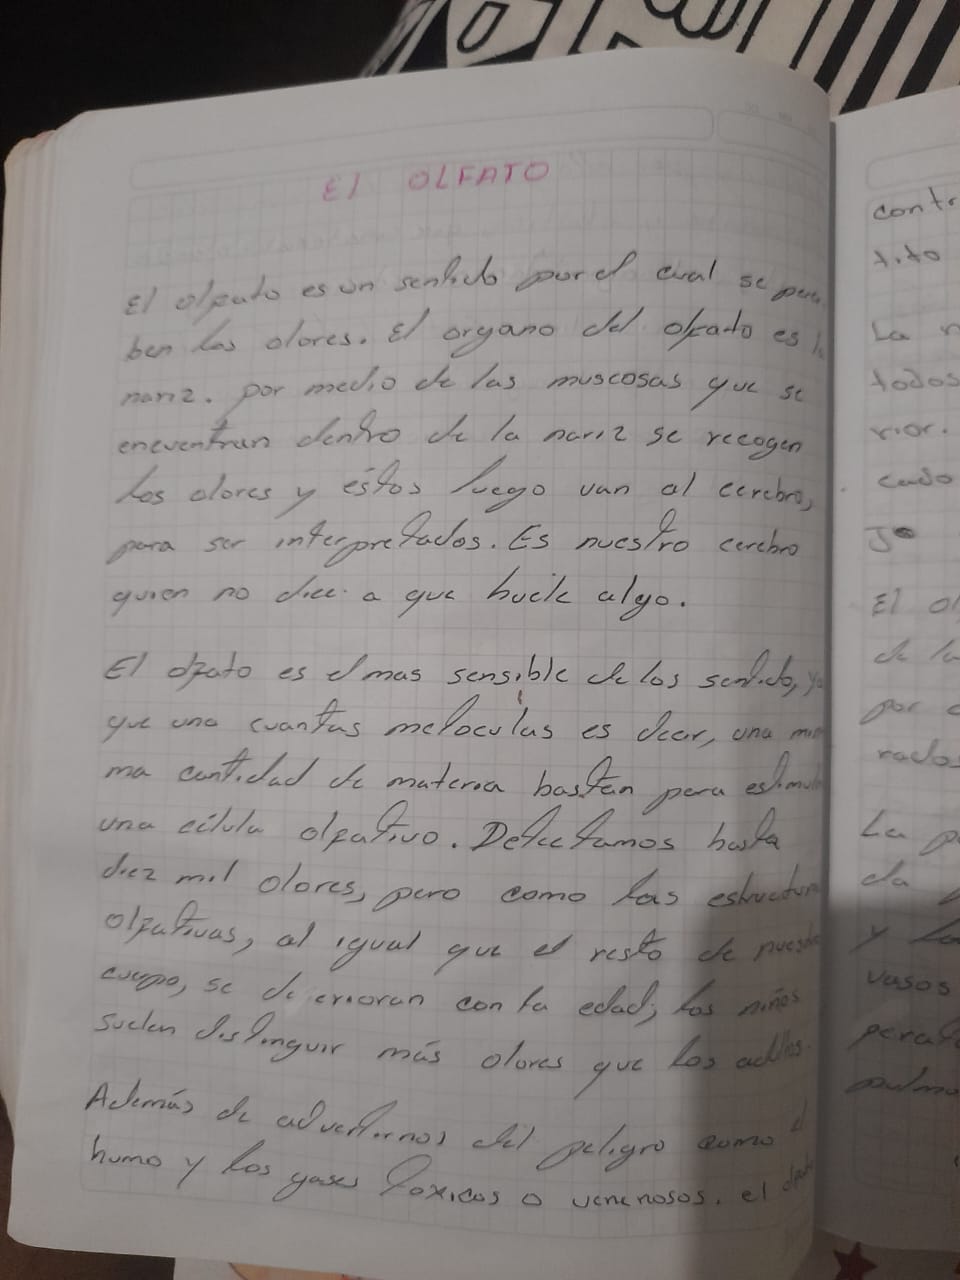 El OLFATO
El olfato es un sentido por el cual se perci
ben los olores. El organo del olfato es la
nariz. por medio de las muscosas que se
encuentran dentro de la nariz se recogen
los olores y éstos luego van al cerebro,
para ser interpretados. Es nuestro cerebro
quien no dice a que huele algo.
El olfato es el mas sensible de los sentido, ya
que una cuantas meloculas es decir, una míni
ma cantidad de materia bastan para estimul
una célula olfativo. Detectamos hasta
diez mil olores, pero como las estructura
olfativas, al igual que el resto de nuestro
cuerpo, se deterioran con la edad, los niños
suelen distinguir más olores que los adultos.
Además de advertirnos del peligro como el
humo y los gases toxicos o venenosos. el olfato
contr
tito
La n
todos
rior.
cado
Jo
El ol
de la
por
rados
La p
da
y la
vasos
pulmo